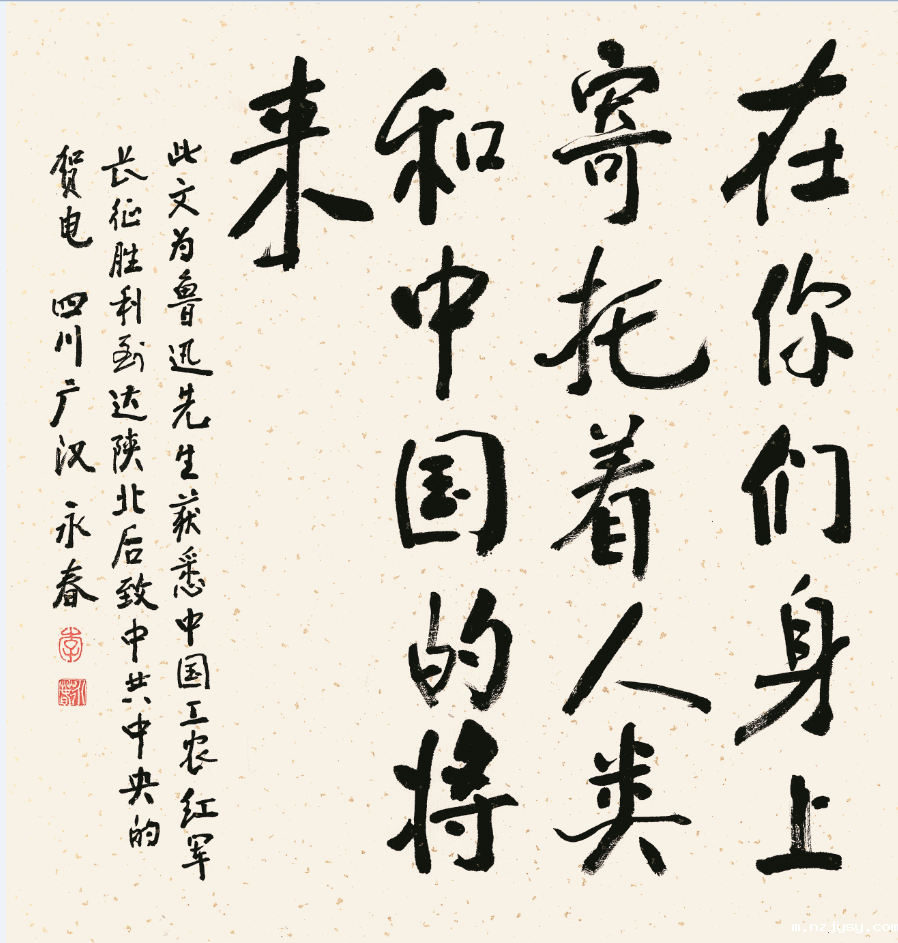 在你们身上
寄托着人类
和中国的将
来
此文为鲁迅先生获悉中国工农红军
长征胜利到达陕北后致中共中央的
贺电 四川广汉 永春
m.nzjgsy.com